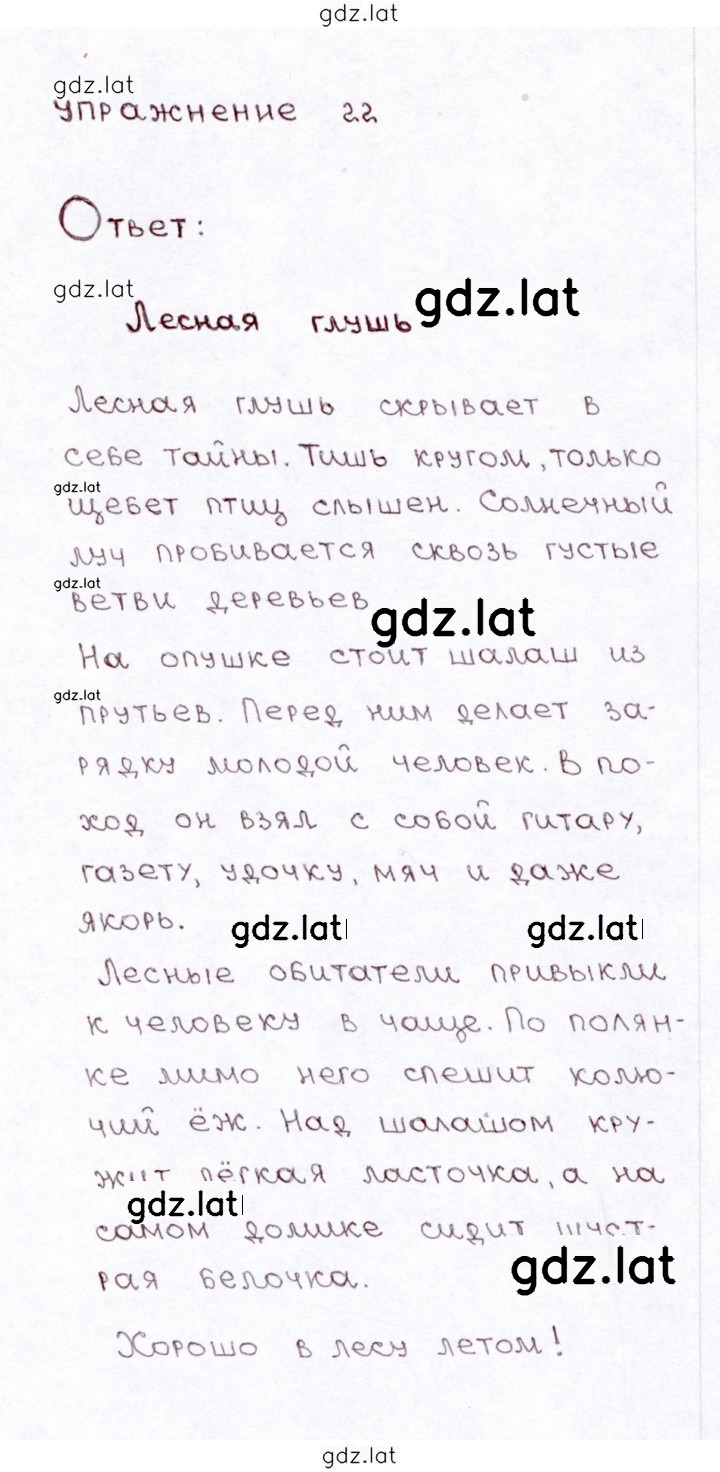 gdz.lat
gdz.lat
упражнение 22
Ответ:
gdz.lat
gdz.lat
Лесная глушь
Лесная глушь скрывает в
себе тайны. Тишь кругом, только
gdz.lat
щебет птиц слышен. Солнечный
луч пробивается сквозь густые
gdz.lat
ветви деревьев
gdz.lat
На опушке стоит шалаш из
gdz.lat
прутьев. Перед ним делает за-
рядку молодой человек. В по-
ход он взял с собой гитару,
газету, удочку, мяч и даже
якорь.
gdz.lat
gdz.lat
Лесные обитатели привыкли
к человеку в чаще. По полян-
ке мимо него спешит колю-
чий ёж. Над шалашом кру-
жит лёгкая ласточка, а на
gdz.lat
самом домике сидит шуст-
gdz.lat
рая белочка.
Хорошо в лесу летом!
gdz.lat